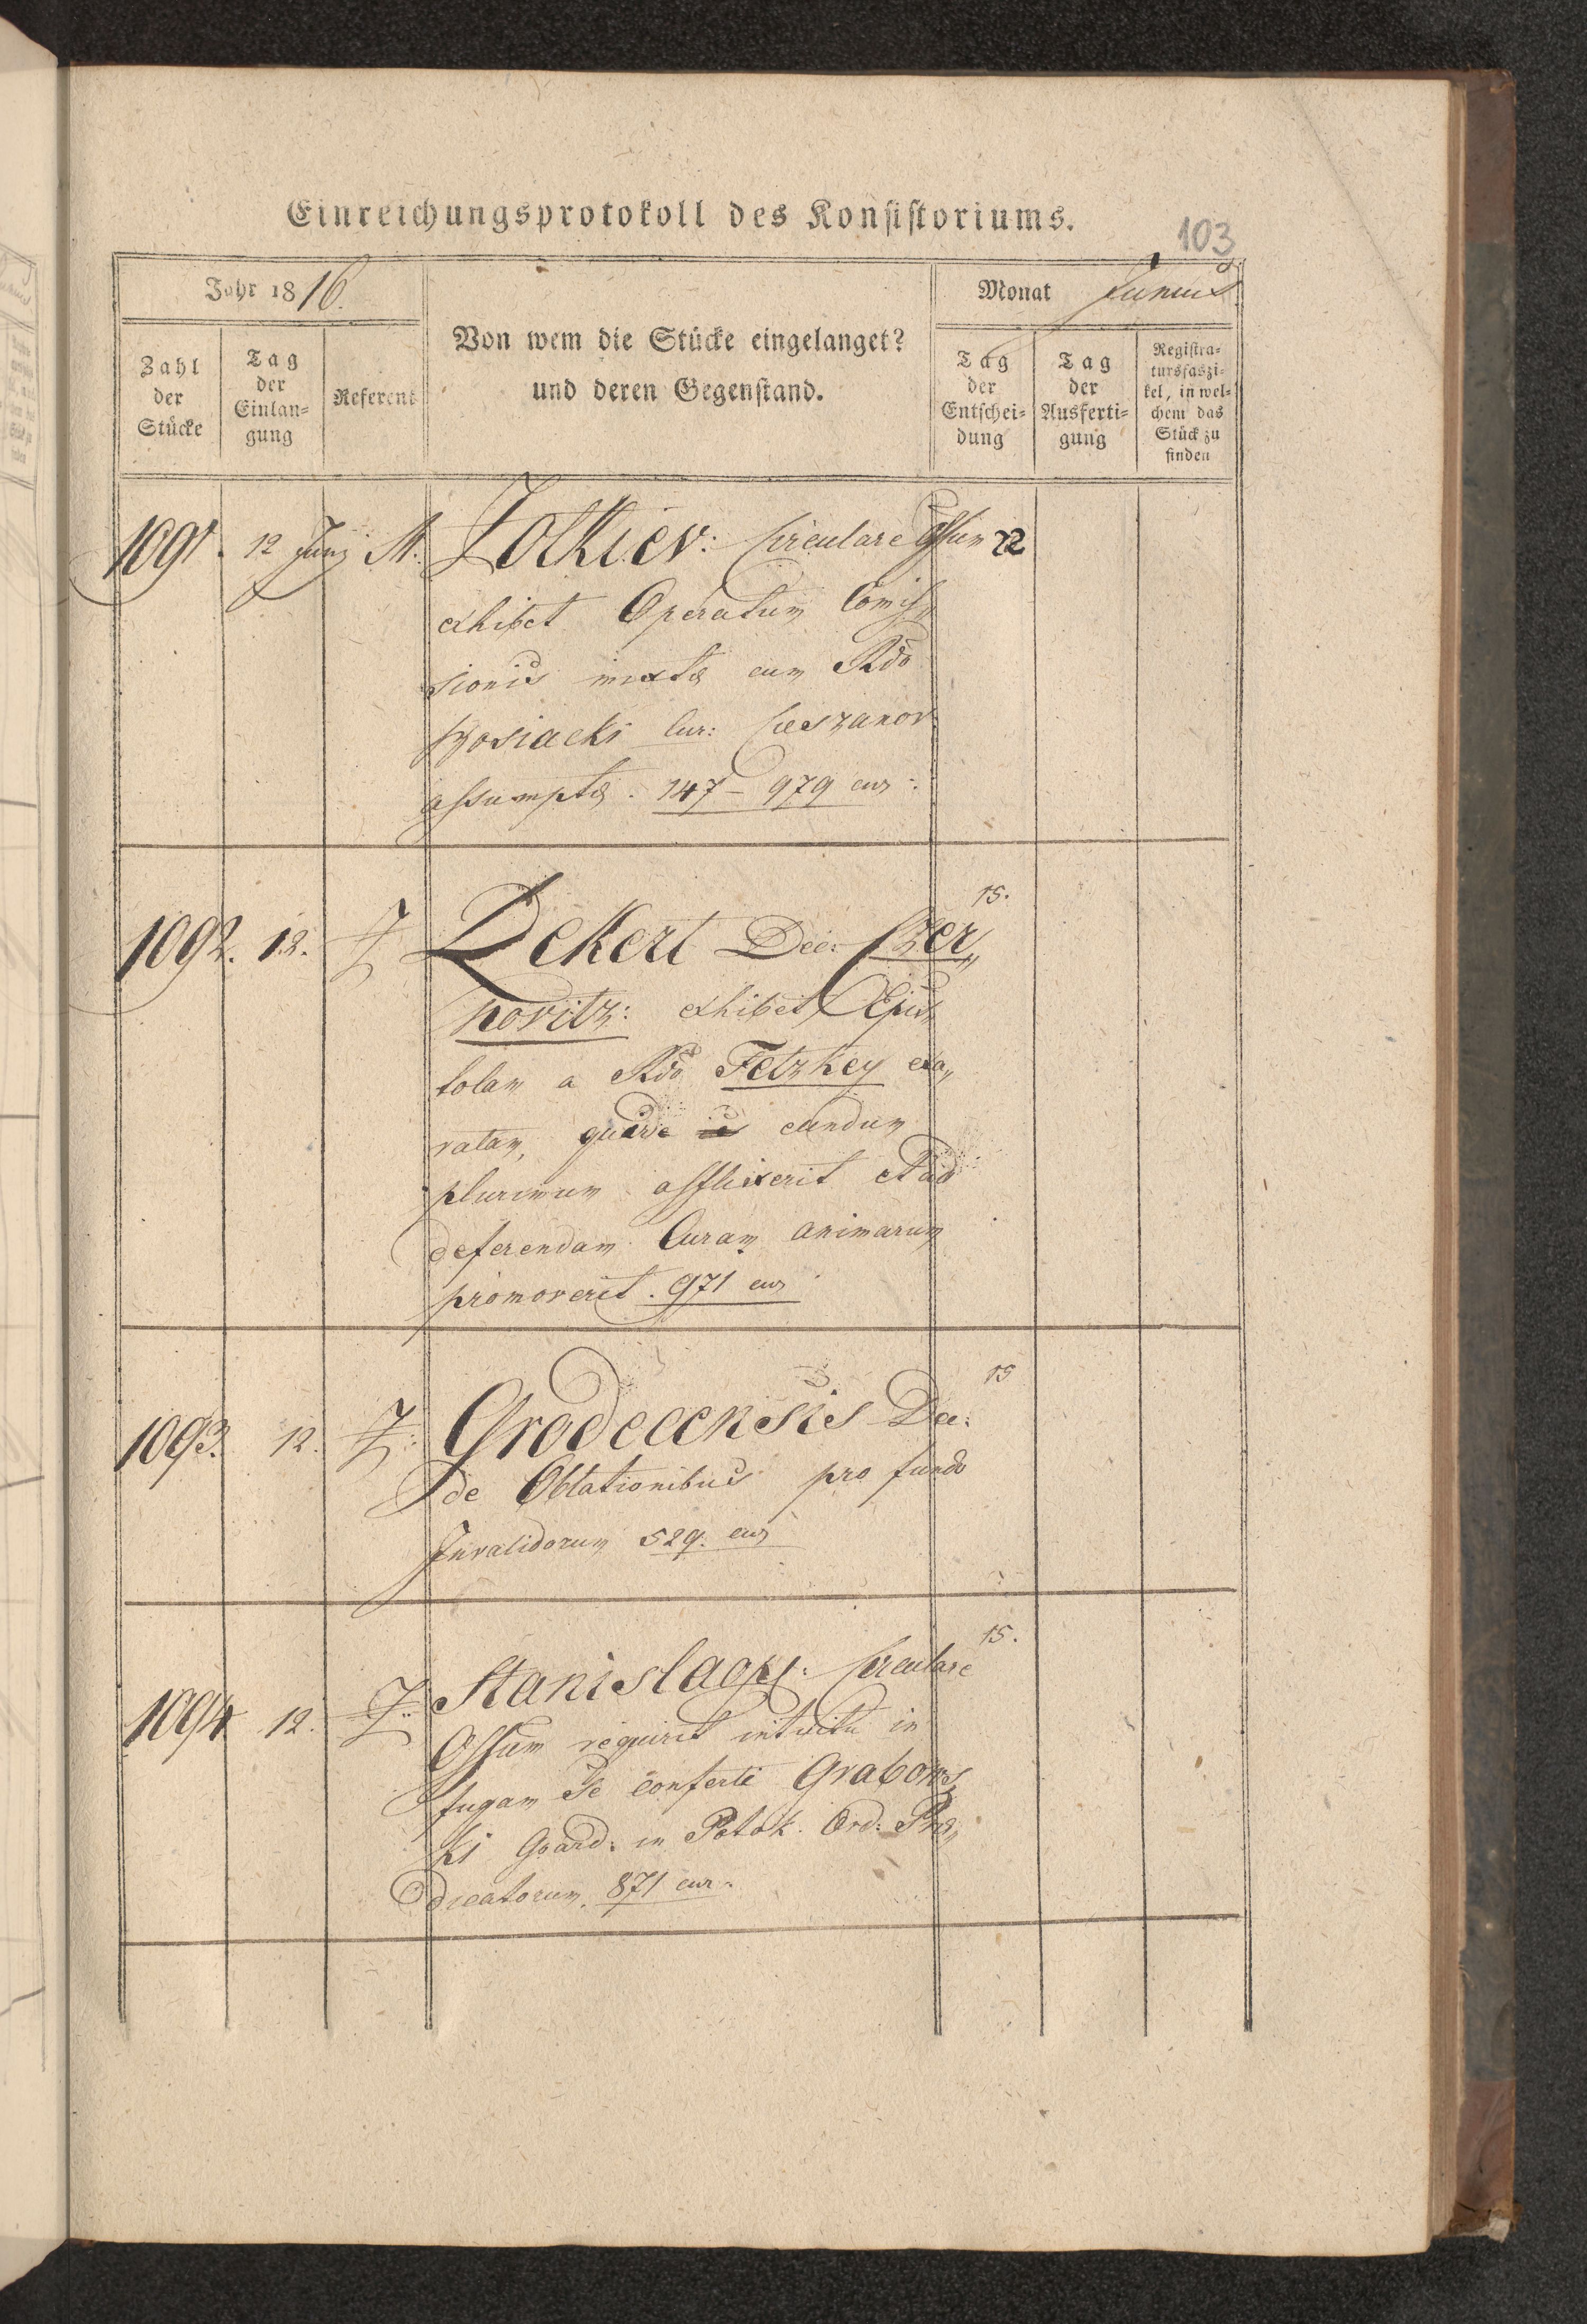 Einreichungsprotokoll des Konsistoriums.
103
Jahr 1816.
Von wem die Stücke eingelanget?
und deren Gegenstand.
Monat Junius
Zahl
der
Stücke
Tag
der
Einlan=
gung
Referent
Tag
der
Entschei=
dung
Tag
der
Ausferti=
gung
Registra=
tursfaszi=
kel, in wel=
chem das
Stück zu
finden
1091. 12 Junj M. Zolkiev: Circulare Offium 22
exhibet Operatum Comis„
sionis mixtæ cum Rdo
Cur: Cieszanov
assumptæ. 147 - 979 cur:
1092. 12. Z Dekert Dec: Czer„ 15.
novitz: exhibet Epis„
tolam a Rdo Fetzkey exa„
ratam, quæve eundum
plurimum afflixerit et ad
deferendam Curam animarum
promoverit. 971 cur
1093. 12. Z: Grodecensis Dec: 15
de Oblationibus pro fundo
Invalidorum 529. cur
1094 12. Z: Stanislaop: Circulare 15.
Offium requirit intuitu in
fugam se conferti Grabows„
ki Guard: in Potok. Ord: Præ„
dicatorum. 871 cur.